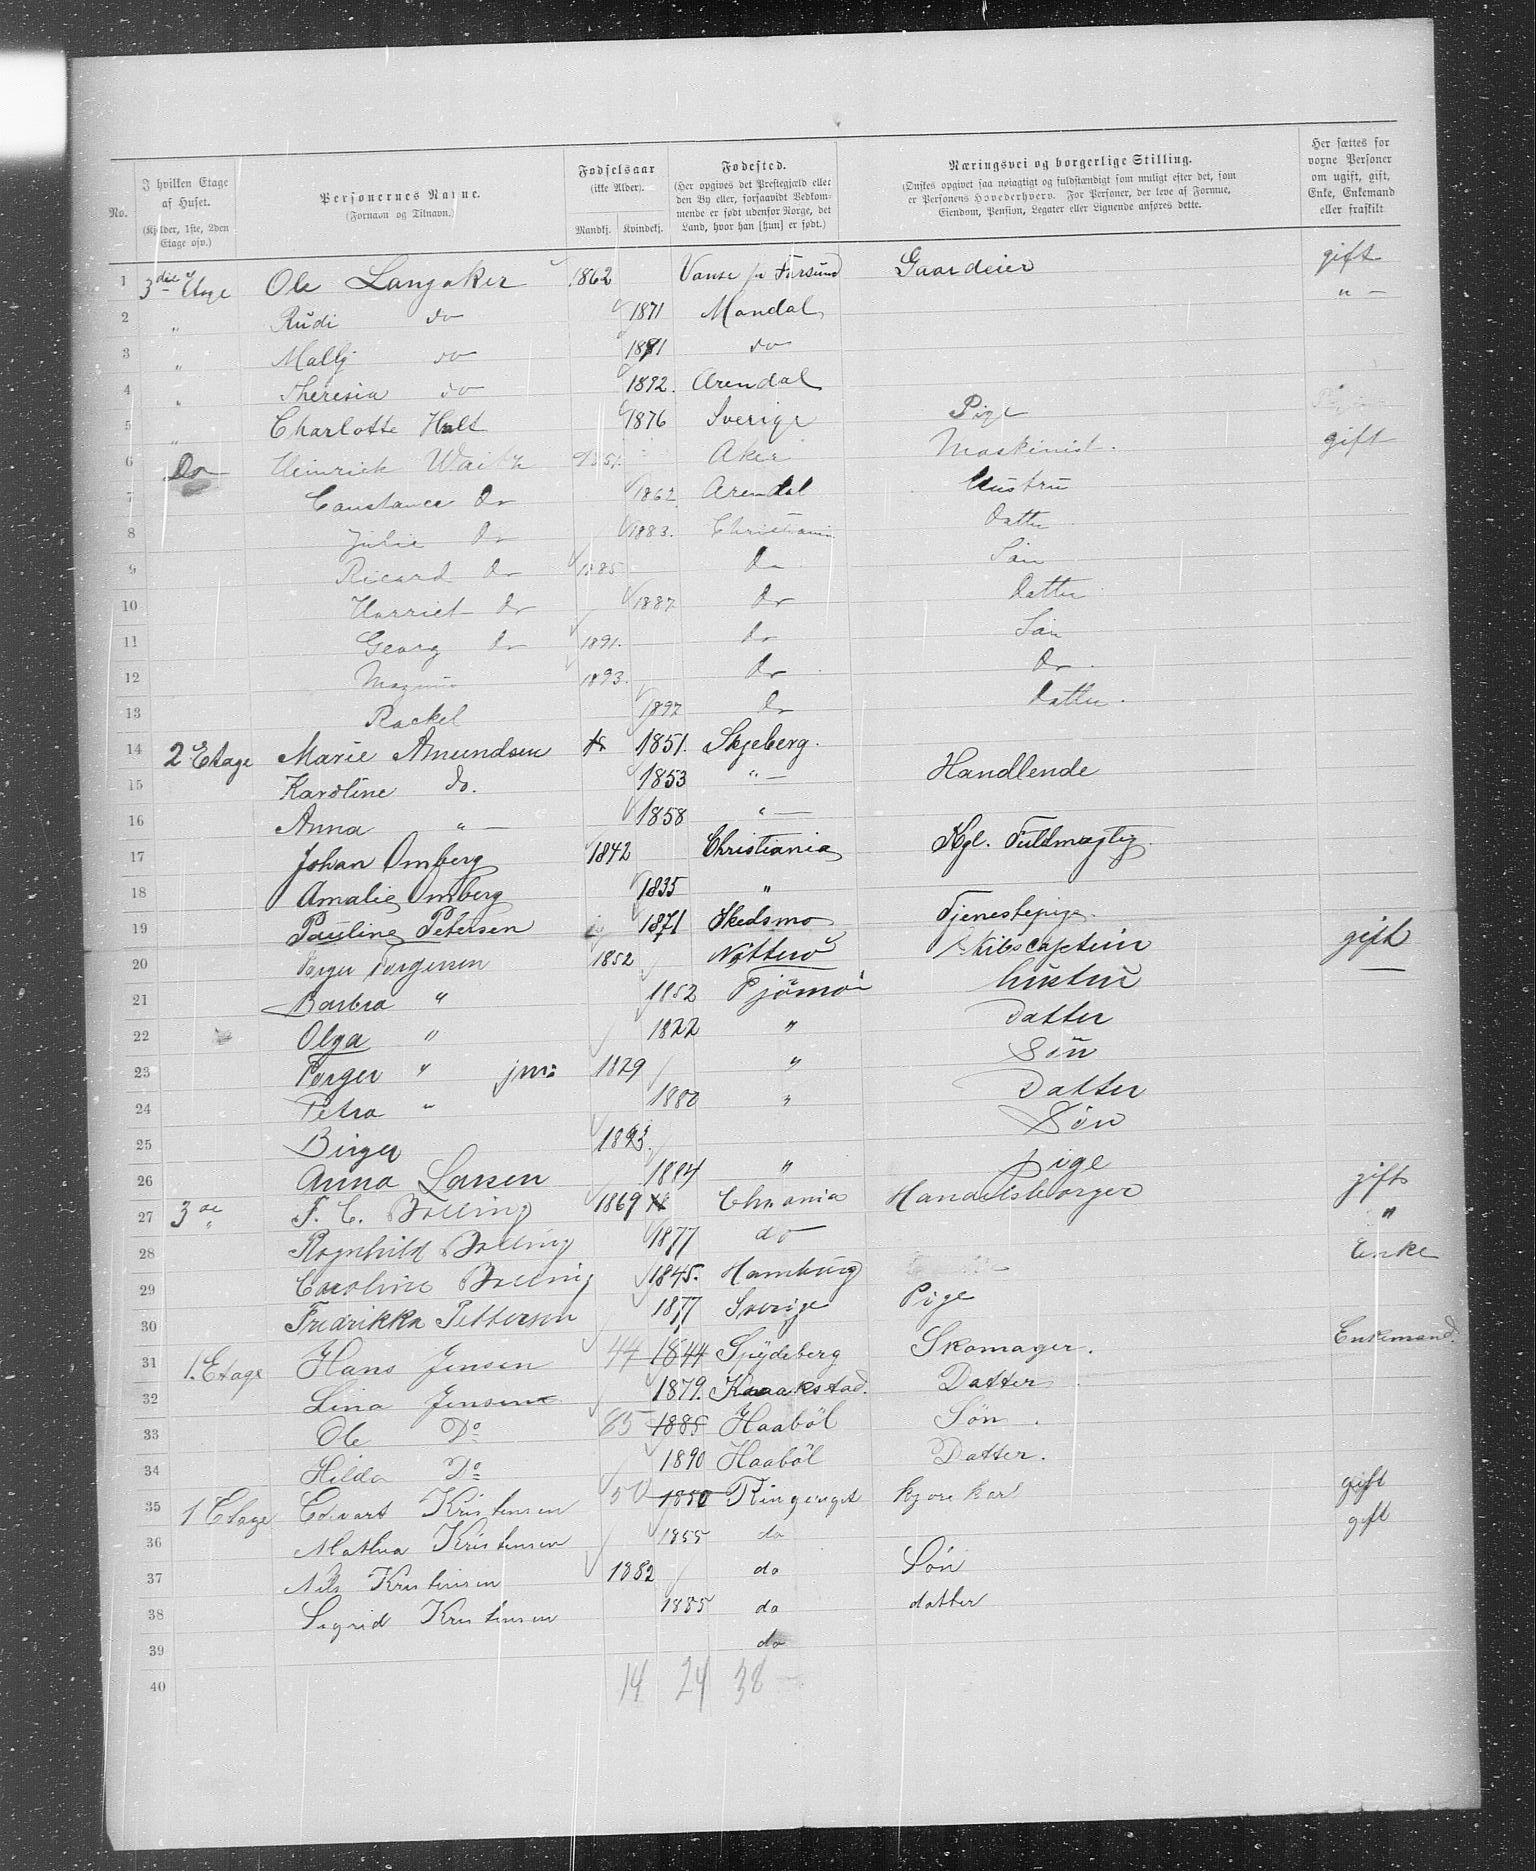 No.
I hvilken Etage af Huset. (Kjelder, 1ste, 2den Etage osv.)
Personernes Navne. (Fornavn og Tilnavn.)
Fødselsaar (ikke Alder). Mandkj. Kvindekj.
Fødested. (Her opgives det Prestegjæld eller den By eller, forsaavidt Vedkommende er født udenfor Norge, det Land, hvor han [hun] er født.)
Næringsvei og borgerlige Stilling. (Ønskes opgivet saa nøiagtigt og fuldstændigt som muligt efter det, som er Personens Hovederhverv. For Personer, der leve af Formue, Eiendom, Pension, Legater eller Lignende anføres dette.)
Her sættes for voxne Personer om ugift, gift, Enke, Enkemand eller fraskilt
1 3die Etage Ole Langaker 1862 Vanse pr Farsund Gaardeier gift
2 " Rudi do 1871 Mandal " —
3 " Mally do 1881 do
4 " Theresia do 1892. Arendal
5 " Charlotte Hult 1876 Sverige Pige
6 Do Heinrich Waitz 1851. Aker Maskinist. gift
7 Constance Do 1862. Arendal Hustru
8 Julie Do 1883. Christiania Datter
9 Ricard Do 1885 Do Søn
10 Harriet Do 1887. Do Datter
11 Georg Do 1891. Do Søn
12 Magnus 1893. Do Do.
13 Rackel 1897 Do Datter.
14 2 Etage Marie Amundsen 1851. Skjeberg.
15 Karoline Do. 1853 " — Handlende
16 Anna " — 1858 " —
17 Johan Omberg 1842 Christiania Kgl. Fuldmægtig.
18 Amalie Omberg 1835 "
19 Pauline Petersen 1871 Skedsmo Tjenestepige.
20 Jørgen 1852 Nøtterø Skibscaptein gift
21 Barbra " 1852 Tjømø Hustru —
22 Olga " 1822 " Datter
23 " jun: 1829 " Søn
24 Petra " 1880 " Datter
25 Birger 1893. Søn
26 Anna Larsen 1884 " pige
27 3de " F. C. Bølling 1869 Chrania Handelsborger gift
28 Ragnhild Bølling 1877 do "
29 Caroline Bølling 1845. Hamburg Enke
30 Fredrikka Petterson 1877 Sverige Pige
31 1. Etage Hans Jensen 44 1844 Spydeberg Skomager. Enkemand.
32 Lina Jensen 1879. Kraakstad. Datter
33 Ole Do 85 1885 Haabøl Søn.
34 Hilda Do 1890 Haabøl Datter.
35 1 Etage Edvart Kristensen 50 1850 Ringeriget kjørekar gift
36 Mathea Kristensen 1855 do gift
37 Nils Kristensen 1882 do Søn
38 Sigrid Kristensen 1885 do datter
39 do
40
14 24 38